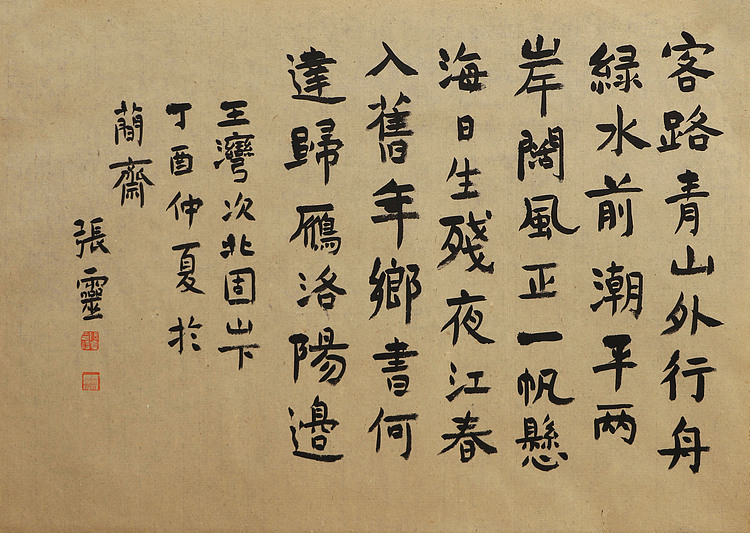 客路青山外行舟
緑水前潮平两
岸闊風正一帆懸
海日生殘夜江春
入舊年鄉書何
達歸鴈洛陽邊
王灣次北固山下
丁酉仲夏於
蕳齋
張靈